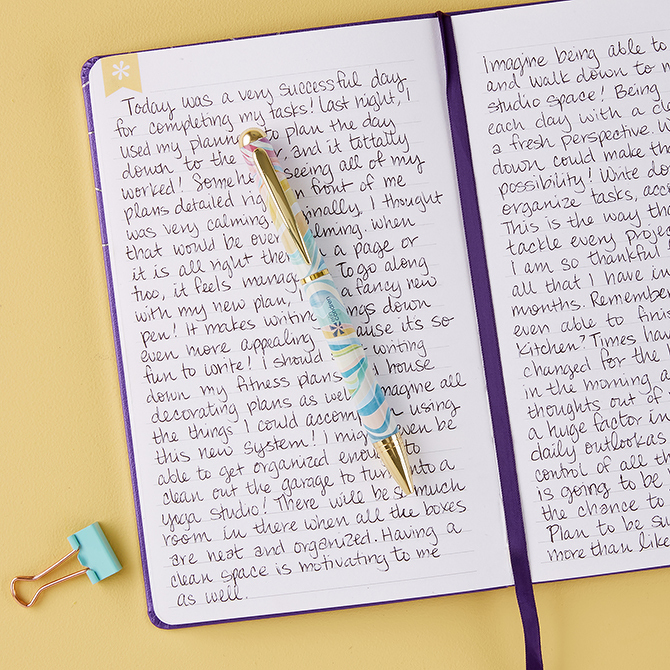 Today was a very successful day
for completing my tasks! Last night, i
used my plann to plan the day
down to the and it totally
worked! Someho seeing all of my
plans detailed rig n front of me
was very calming. ginally, I thought
that would be over lming. when
it is all right the a page or
two, it feels manag To go along
with my new plan, a fancy new
pen! It makes writin ngs down
even more appealing ause its so
fun to write! I should writing
down my fitness plans house
decorating plans as wel magine all
the things I could accomp n using
this new system! I migh ven be
able to get organized enou to
clean out the garage to tur nto a
yoga studio! There will be so much
room in there when all the boxes
are neat and organized. Having a
clean space is motivating to me
as well.
Imagine being able to
and walk down to m
studio space! Being
each day with a cl
a fresh perspective. W
down could make tha
possibility! Write do
organize tasks, acc
This is the way th
tackle every projec
I am so thankful
all that I have in
months. Remember
even able to finis
kitchen? Times hav
changed for the
in the morning a
thoughts out of
a huge factor in
daily outlook as
control of all th
is going to be
the chance to
Plan to be su
more than like